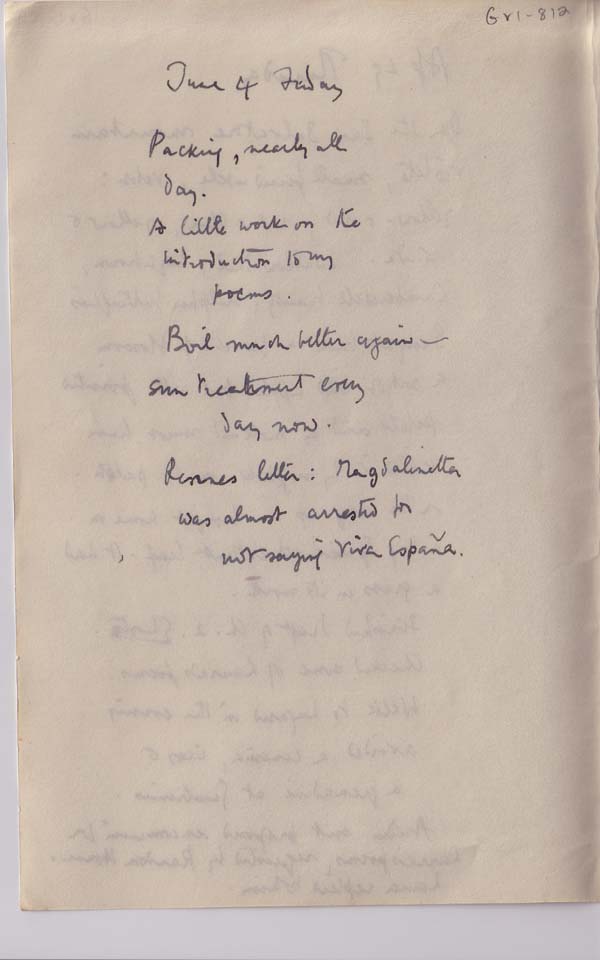 GV1-812
June 4 Friday
Packing, nearly all
day.
A little work on the
introduction to my
poems.
Boil much better again –
sun treatment every
day now.
letter: Magdalinetta
was almost arrested for
not saying Viva España.